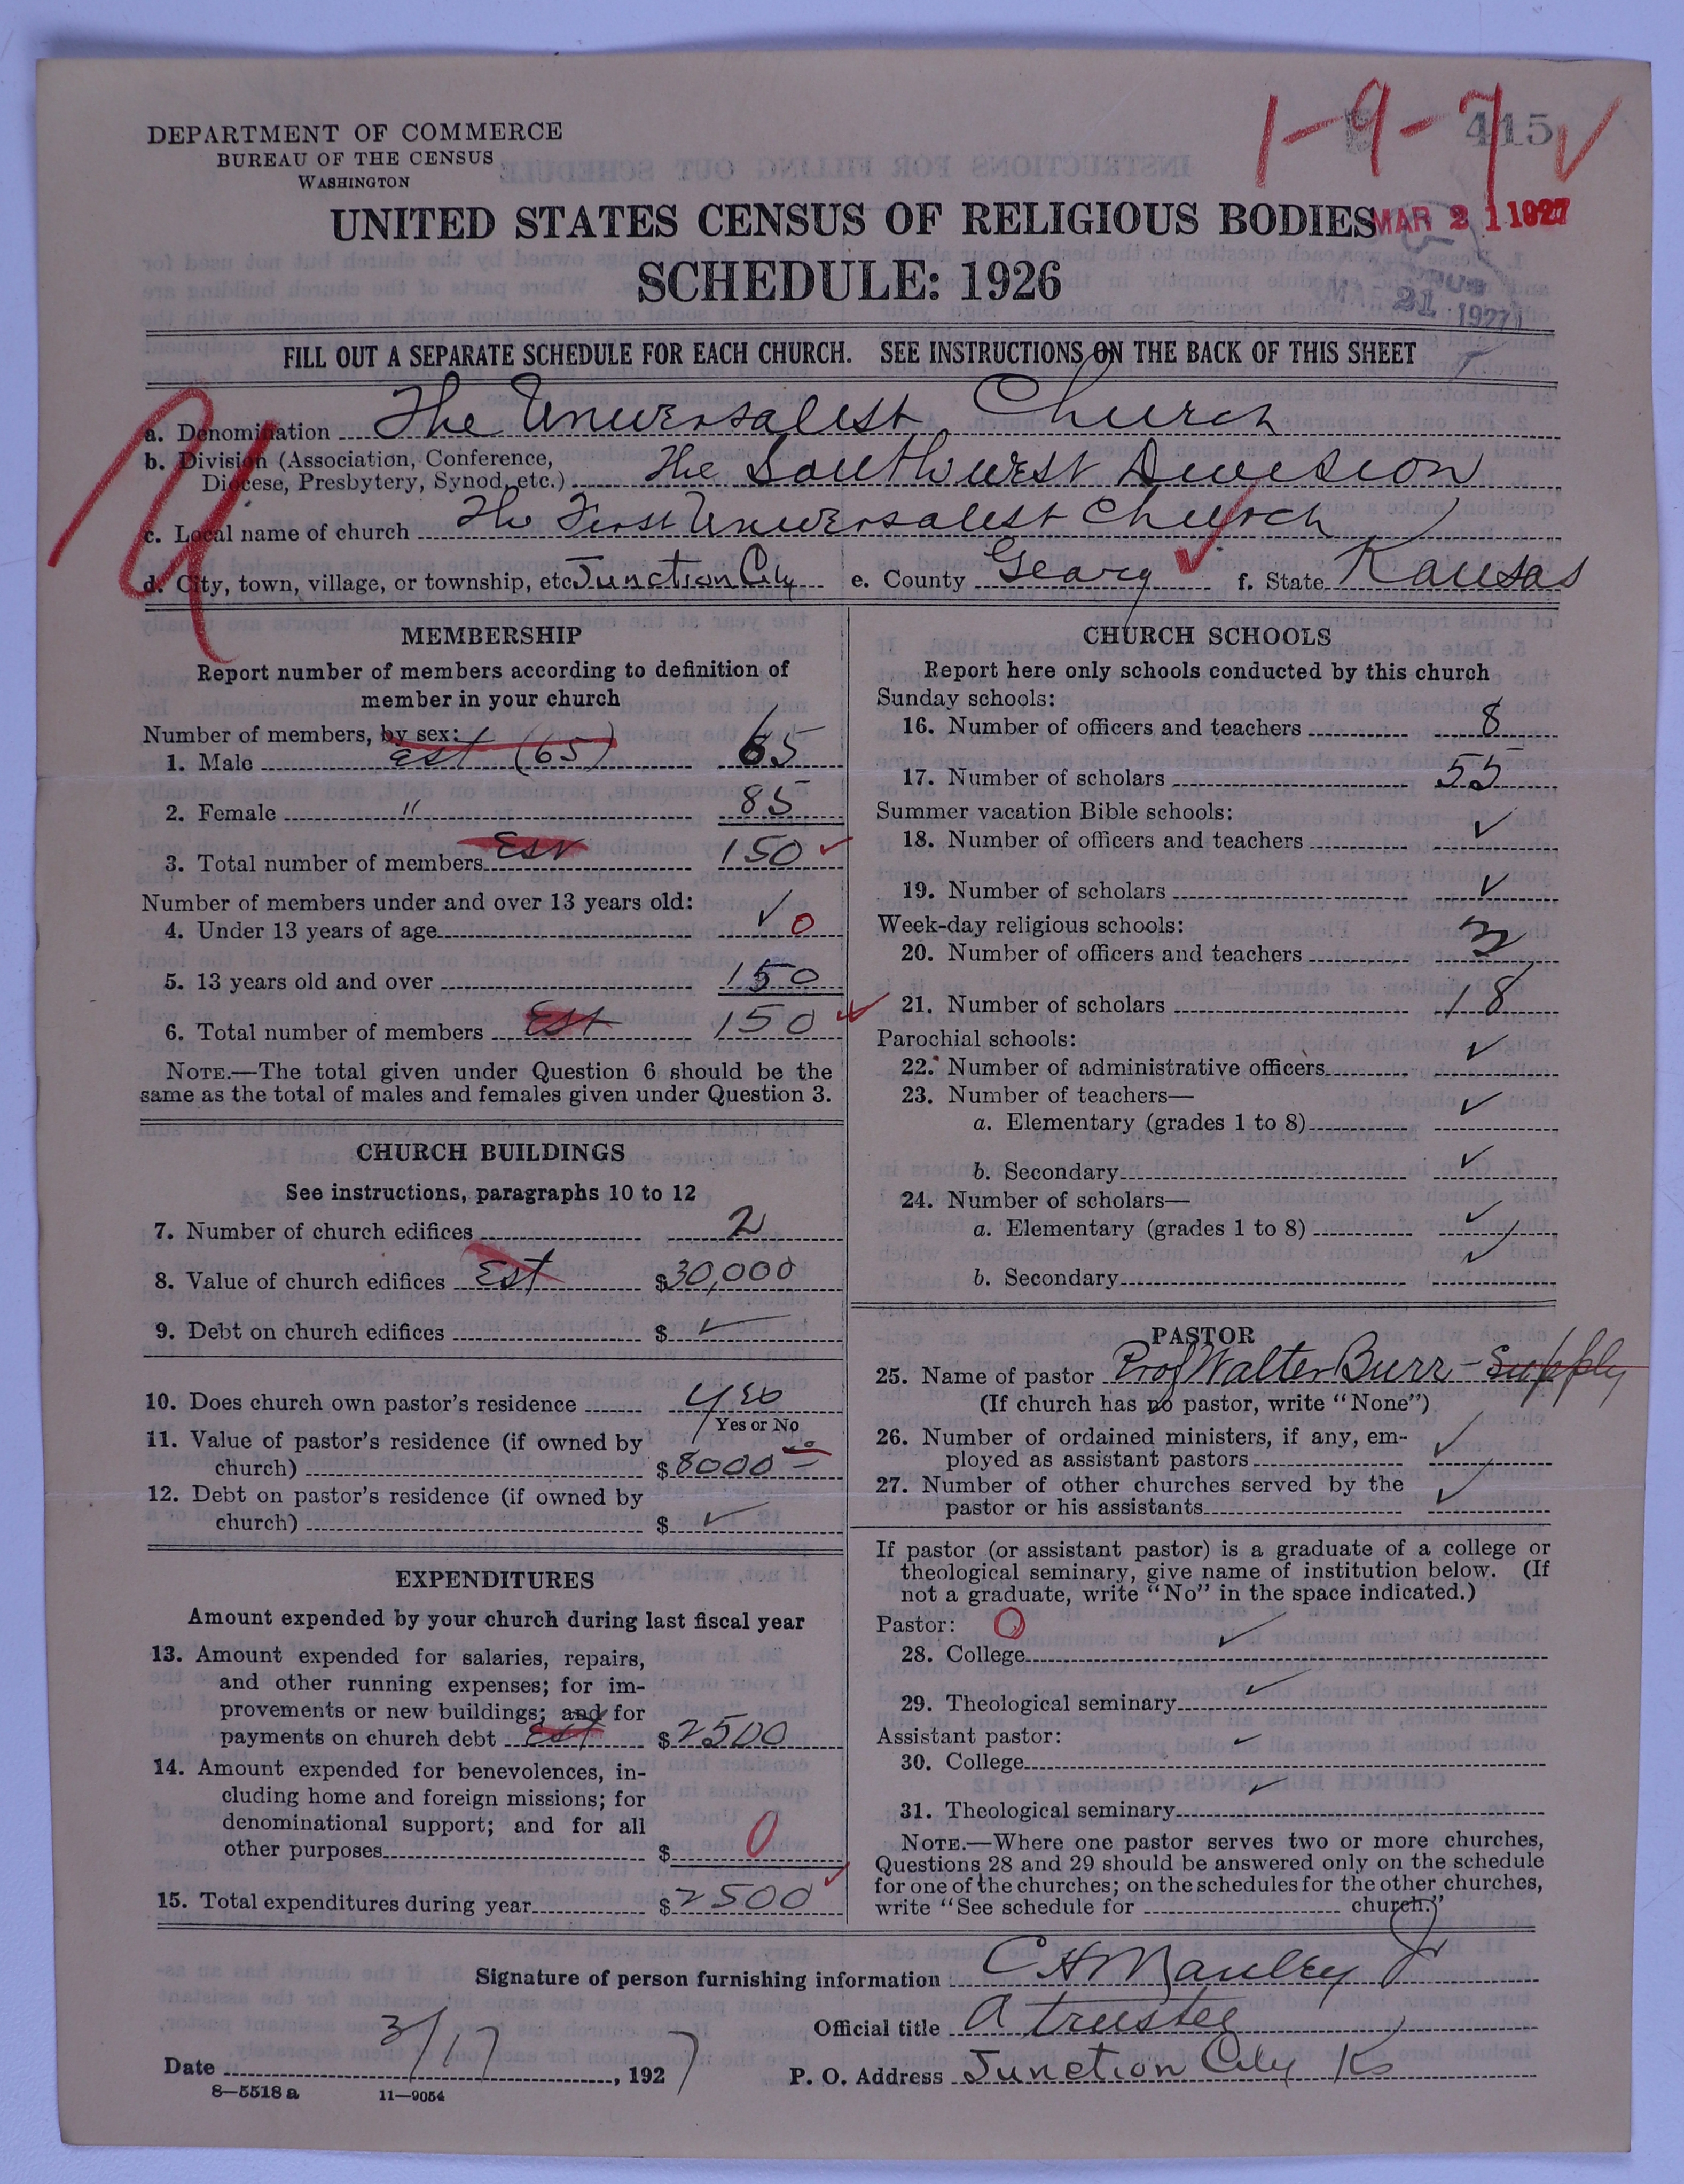 1-9-7 ✓
415
DEPARTMENT OF COMMERCE
BUREAU OF THE CENSUS
WASHINGTON
UNITED STATES CENSUS OF RELIGIOUS BODIES
MAR 21 1927
SCHEDULE: 1926
21 1927
FILL OUT A SEPARATE SCHEDULE FOR EACH CHURCH. SEE INSTRUCTIONS ON THE BACK OF THIS SHEET
a. Denomination The Universalist Church
b. Division (Association, Conference,
Diocese, Presbytery, Synod, etc.) The Southwest Division
c. Local name of church The First Universalist Church
d. City, town, village, or township, etc. Junction City e. County Geary ✓ f. State Kansas
MEMBERSHIP
Report number of members according to definition of
member in your church
Number of members, by sex:
1. Male est (65) 65
2. Female " 85
3. Total number of members Est 150 ✓
Number of members under and over 13 years old:
4. Under 13 years of age ✓ 0
5. 13 years old and over 150
6. Total number of members Est 150 ✓
NOTE.—The total given under Question 6 should be the
same as the total of males and females given under Question 3.
CHURCH BUILDINGS
See instructions, paragraphs 10 to 12
7. Number of church edifices 2
8. Value of church edifices Est $30,000
9. Debt on church edifices $ ✓
10. Does church own pastor's residence yes
Yes or No
11. Value of pastor's residence (if owned by
church) $8000 00
12. Debt on pastor's residence (if owned by
church) $ ✓
EXPENDITURES
Amount expended by your church during last fiscal year
13. Amount expended for salaries, repairs,
and other running expenses; for im-
provements or new buildings; and for
payments on church debt Est $2500
14. Amount expended for benevolences, in-
cluding home and foreign missions; for
denominational support; and for all
other purposes $ 0
15. Total expenditures during year $2500 ✓
CHURCH SCHOOLS
Report here only schools conducted by this church
Sunday schools:
16. Number of officers and teachers 8
17. Number of scholars 55
Summer vacation Bible schools:
18. Number of officers and teachers ✓
19. Number of scholars ✓
Week-day religious schools:
20. Number of officers and teachers 3
21. Number of scholars 18
Parochial schools:
22. Number of administrative officers ✓
23. Number of teachers—
a. Elementary (grades 1 to 8) ✓
b. Secondary ✓
24. Number of scholars—
a. Elementary (grades 1 to 8) ✓
b. Secondary ✓
PASTOR
25. Name of pastor Prof Walter Burr - Supply
(If church has no pastor, write "None")
26. Number of ordained ministers, if any, em-
ployed as assistant pastors ✓
27. Number of other churches served by the
pastor or his assistants ✓
If pastor (or assistant pastor) is a graduate of a college or
theological seminary, give name of institution below. (If
not a graduate, write "No" in the space indicated.)
Pastor: O
28. College ✓
29. Theological seminary ✓
Assistant pastor:
30. College ✓
31. Theological seminary ✓
NOTE.—Where one pastor serves two or more churches,
Questions 28 and 29 should be answered only on the schedule
for one of the churches; on the schedules for the other churches,
write "See schedule for church."
Signature of person furnishing information C H Manley Jr
Official title A trustee
Date 3/17, 1927 P. O. Address Junction City Ks
8—5518a 11—9054